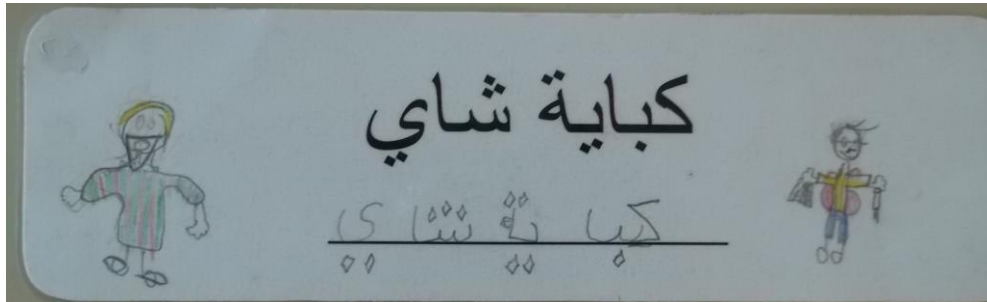 كباية شاي
كبا ية شا ي